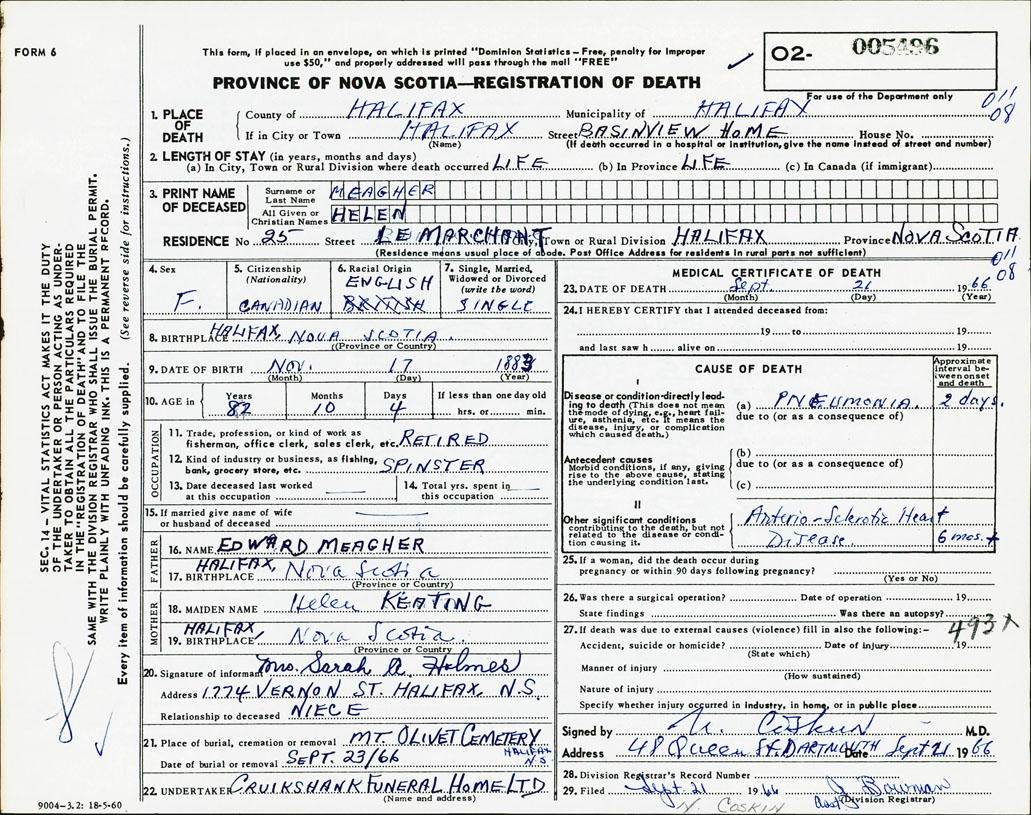 FORM 6
This form, if placed in an envelope, on which is printed "Dominion Statistics – Free, penalty for improper
use $50," and properly addressed will pass through the mail "FREE"
PROVINCE OF NOVA SCOTIA—REGISTRATION OF DEATH
02- 005496
For use of the Department only
011
08
1. PLACE OF DEATH
County of HALIFAX Municipality of HALIFAX
If in City or Town HALIFAX Street BASINVIEW HOME House No.
(Name) (If death occurred in a hospital or institution, give the name instead of street and number)
2. LENGTH OF STAY (in years, months and days)
(a) In City, Town or Rural Division where death occurred LIFE (b) In Province LIFE (c) In Canada (if immigrant)
3. PRINT NAME OF DECEASED
Surname or Last Name MEAGHER
All Given or Christian Names HELEN
RESIDENCE No 25 Street LE MARCHANT City, Town or Rural Division HALIFAX Province NOVA SCOTIA
(Residence means usual place of abode. Post Office Address for residents in rural parts not sufficient)
011
08
4. Sex F.
5. Citizenship (Nationality) CANADIAN
6. Racial Origin ENGLISH
7. Single, Married, Widowed or Divorced (write the word) SINGLE
8. BIRTHPLACE HALIFAX, NOVA SCOTIA.
(Province or Country)
9. DATE OF BIRTH NOV. 17 1883
(Month) (Day) (Year)
10. AGE in Years 82 Months 10 Days 4 If less than one day old hrs. or min.
OCCUPATION
11. Trade, profession, or kind of work as
fisherman, office clerk, sales clerk, etc. RETIRED
12. Kind of industry or business, as fishing,
bank, grocery store, etc. SPINSTER
13. Date deceased last worked
at this occupation
14. Total yrs. spent in
this occupation
15. If married give name of wife
or husband of deceased
FATHER
16. NAME EDWARD MEAGHER
17. BIRTHPLACE HALIFAX, Nova Scotia
(Province or Country)
MOTHER
18. MAIDEN NAME Helen KEATING
19. BIRTHPLACE HALIFAX, Nova Scotia.
(Province or Country)
20. Signature of informant Mrs. Sarah A. Holmes
Address 1774 VERNON ST. HALIFAX, N.S.
Relationship to deceased NIECE
21. Place of burial, cremation or removal MT. OLIVET CEMETERY
HALIFAX N.S.
Date of burial or removal SEPT. 23/66
22. UNDERTAKER CRUIKSHANK FUNERAL HOME LTD
(Name and address)
9004-3.2: 18-5-60
MEDICAL CERTIFICATE OF DEATH
23. DATE OF DEATH Sept. 21 1966
(Month) (Day) (Year)
24. I HEREBY CERTIFY that I attended deceased from:
19 to 19
and last saw h alive on 19
CAUSE OF DEATH
Approximate interval between onset and death
I
Disease or condition directly leading to death (This does not mean
the mode of dying, e.g., heart failure, asthenia, etc. It means the
disease, injury, or complication
which caused death.)
(a) PNEUMONIA. 2 days.
due to (or as a consequence of)
Antecedent causes
Morbid conditions, if any, giving
rise to the above cause, stating
the underlying condition last.
(b)
due to (or as a consequence of)
(c)
II
Other significant conditions
contributing to the death, but not
related to the disease or condition causing it.
Arterio-Sclerotic Heart
Disease. 6 mos. +
25. If a woman, did the death occur during
pregnancy or within 90 days following pregnancy?
(Yes or No)
26. Was there a surgical operation? Date of operation 19
State findings Was there an autopsy?
27. If death was due to external causes (violence) fill in also the following:–
493X
Accident, suicide or homicide? Date of injury 19
(State which)
Manner of injury
(How sustained)
Nature of injury
Specify whether injury occurred in industry, in home, or in public place
Signed by N. Coskun M.D.
Address 48 Queen St. DARTMOUTH Date Sept 21 1966
28. Division Registrar's Record Number
29. Filed Sept. 21 1966 J Bowman
(Division Registrar)
N. COSKIN
SEC. 14 – VITAL STATISTICS ACT MAKES IT THE DUTY
OF THE UNDERTAKER OR PERSON ACTING AS UNDER-
TAKER TO OBTAIN ALL THE PARTICULARS REQUIRED
IN THE "REGISTRATION OF DEATH" AND TO FILE THE
SAME WITH THE DIVISION REGISTRAR WHO SHALL ISSUE THE BURIAL PERMIT.
WRITE PLAINLY WITH UNFADING INK. THIS IS A PERMANENT RECORD.
Every item of information should be carefully supplied. (See reverse side for instructions.)